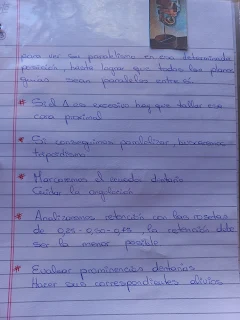 para ver su paralelismo en una determinada
posición, hasta lograr que todos los planos
guías sean paralelos entre sí.
* Si el Δ es excesivo hay que tallar esa
cara proximal
* Si conseguimos paralelizar, buscaremos
* Marcaremos el ecuador dentario
Quitar la angulación
* Analizaremos retención con las rosetas
de 0,25 - 0,50 - 0,75, la retención debe
ser la menor posible
* Evaluar prominencias dentarias
Hacer sus correspondientes alivios